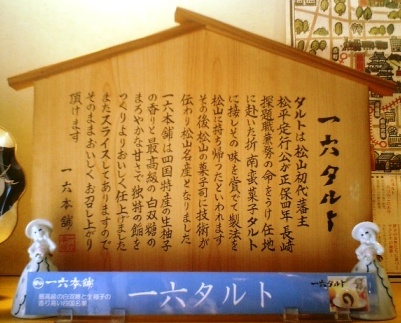 一六タルト
タルトは松山初代藩主
松平定行公が正保四年、長崎
探題職兼務の命をうけ任地
に赴いた折、南蛮菓子タルト
に接しその味を賞で、製法を
松山に持ち帰ったといわれます
その後、松山の菓子司に技術が
伝わり松山名産となりました
一六本舗は四国特産の生柚子
の香りと最高級の白双糖の
まろやかな甘さで独特の餡を
つくりよりおいしく仕上げました
またスライスしてありますので
そのままおいしくお召し上がり
頂けます
一六本舗
一六本舗
最高級の白双糖と生柚子の
香り高い四国名菓
一六タルト
一六タルト